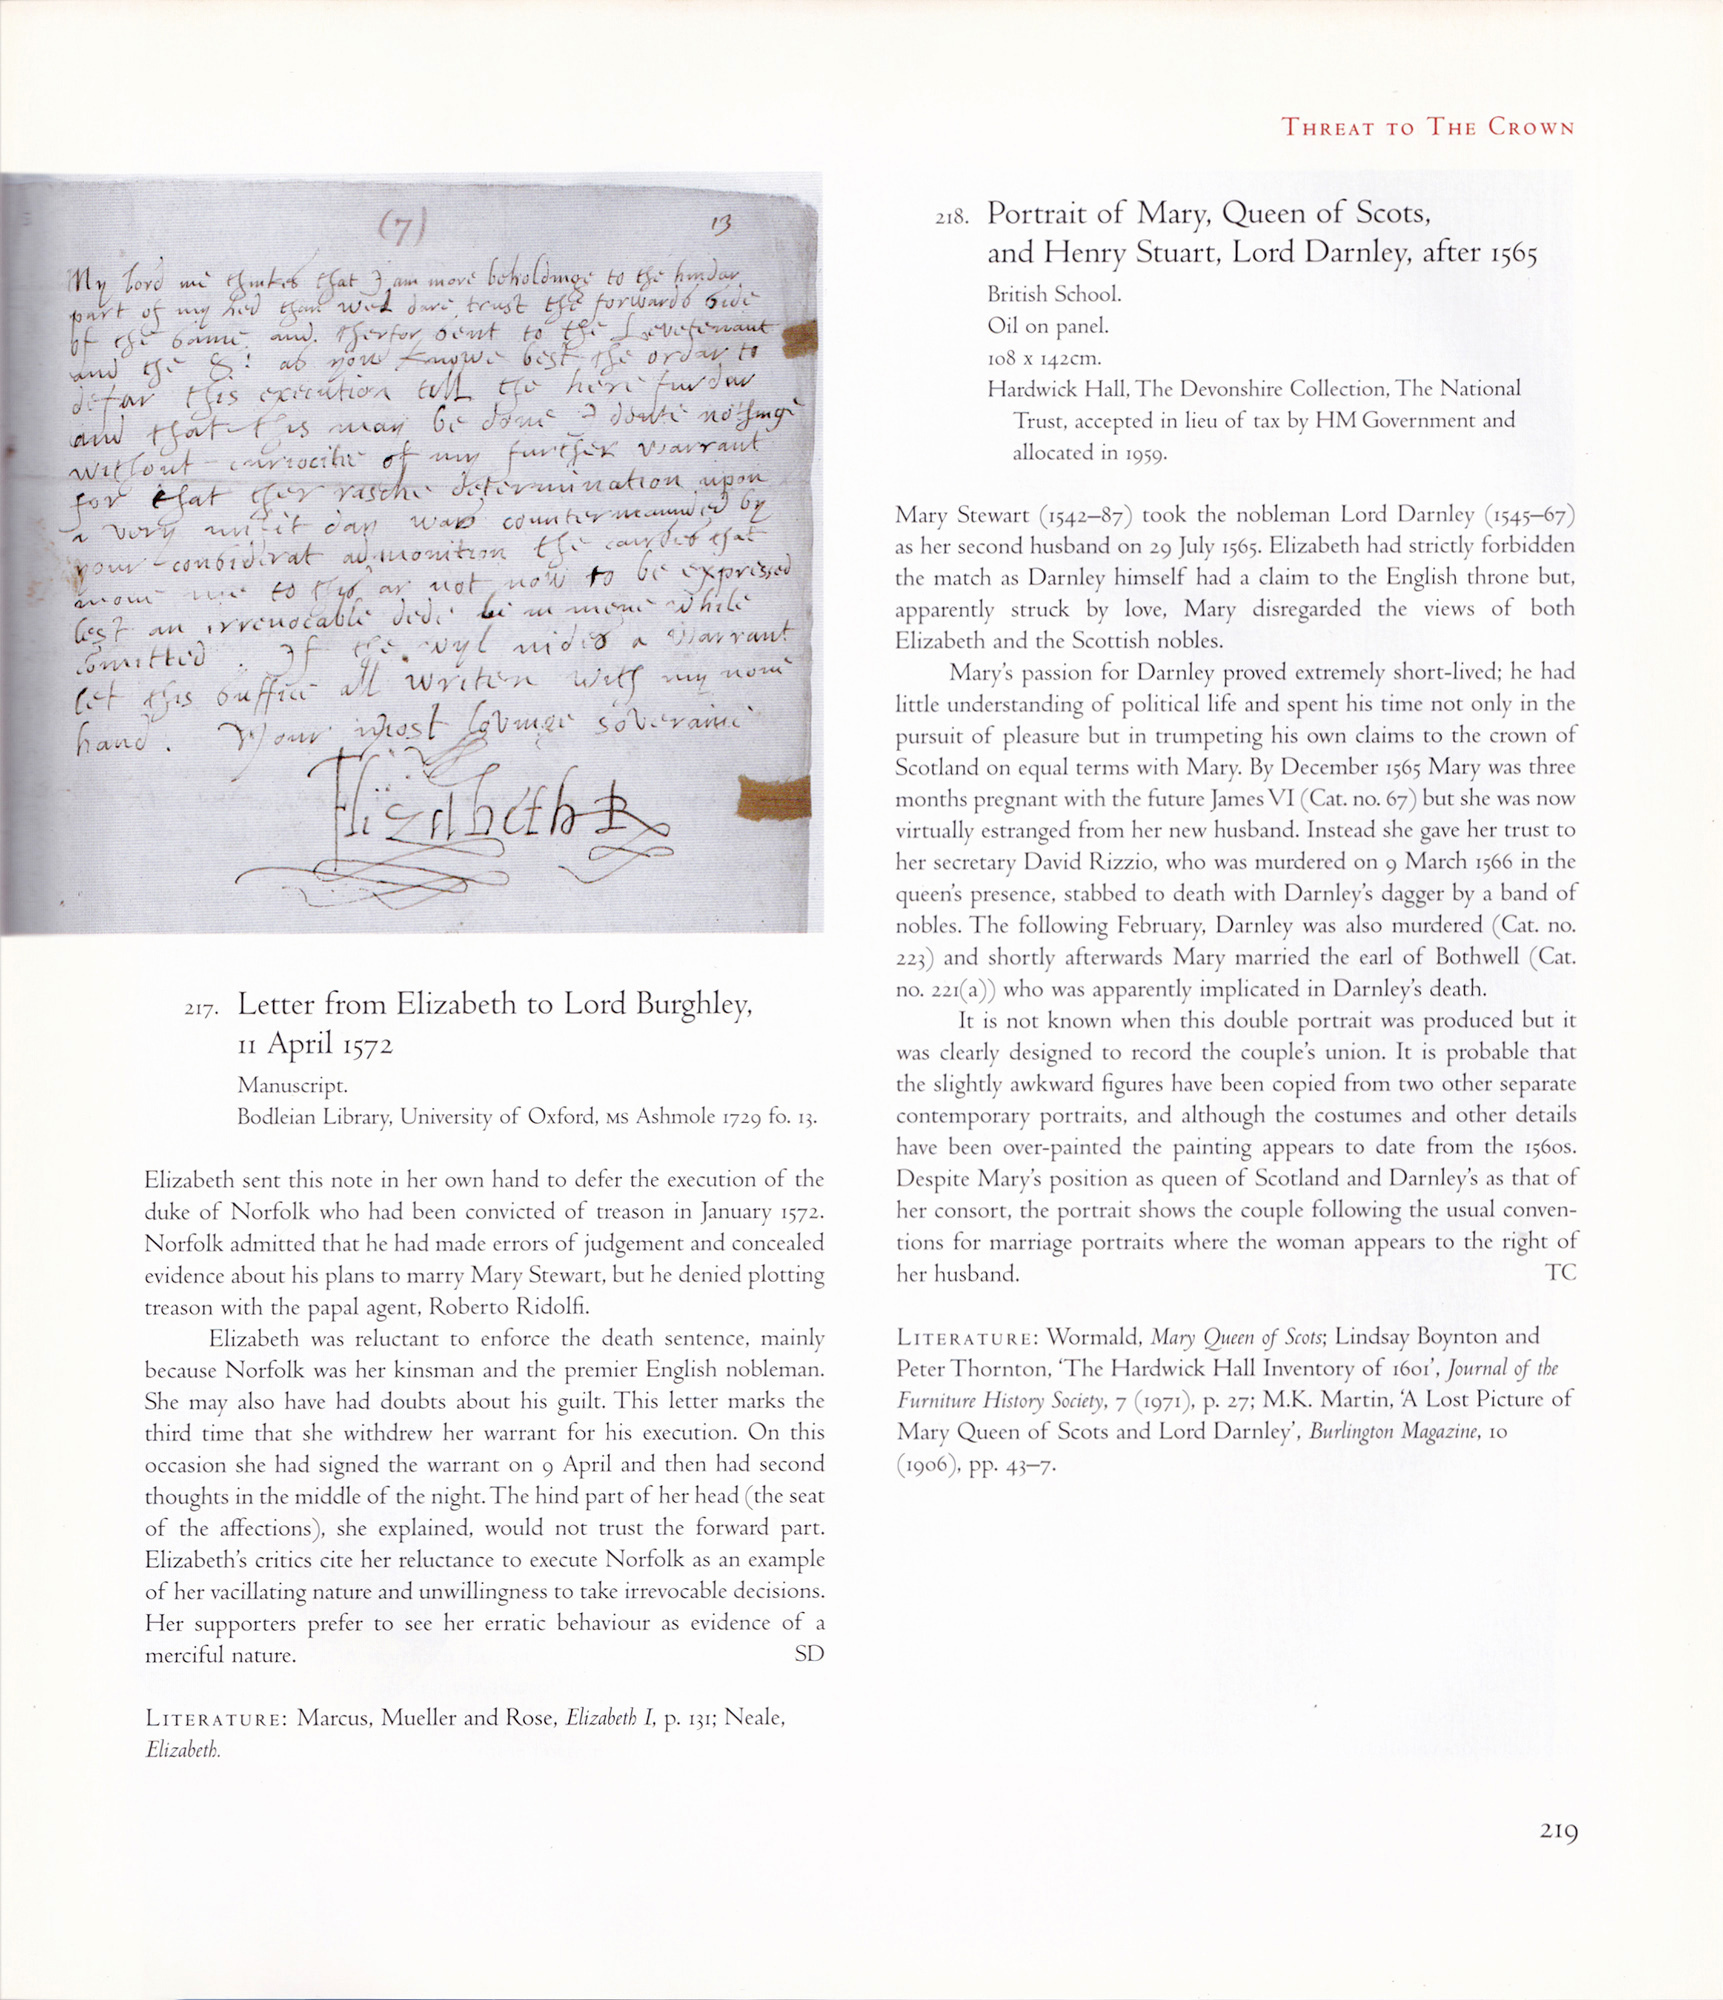 THREAT TO THE CROWN
(7)
13
My lord me thinkes that I am more beholdinge to the hindar
part of my hed than wel dare trust the forwards side
of the same and therfor sent to the Levetenant
and the S: as you knowe best the ordar to
defar this execution till the here furdar
and that this may be done I doute nothinge
without curiocitie of my further warrant
for that ther rasche determination upon
a very unfit day was countermaunded by
your considerat admonition the causes that
move me to this ar not now to be expressed
lest an irrevocable dede be in mene while
comitted. If the wyl nides a warrant
let this suffice all writen with my none
hand. Your most lovinge soveraine
Elizabeth R
217. Letter from Elizabeth to Lord Burghley,
11 April 1572
Manuscript.
Bodleian Library, University of Oxford, MS Ashmole 1729 fo. 13.
Elizabeth sent this note in her own hand to defer the execution of the
duke of Norfolk who had been convicted of treason in January 1572.
Norfolk admitted that he had made errors of judgement and concealed
evidence about his plans to marry Mary Stewart, but he denied plotting
treason with the papal agent, Roberto Ridolfi.
Elizabeth was reluctant to enforce the death sentence, mainly
because Norfolk was her kinsman and the premier English nobleman.
She may also have had doubts about his guilt. This letter marks the
third time that she withdrew her warrant for his execution. On this
occasion she had signed the warrant on 9 April and then had second
thoughts in the middle of the night. The hind part of her head (the seat
of the affections), she explained, would not trust the forward part.
Elizabeth's critics cite her reluctance to execute Norfolk as an example
of her vacillating nature and unwillingness to take irrevocable decisions.
Her supporters prefer to see her erratic behaviour as evidence of a
merciful nature. SD
LITERATURE: Marcus, Mueller and Rose, Elizabeth I, p. 131; Neale,
Elizabeth.
218. Portrait of Mary, Queen of Scots,
and Henry Stuart, Lord Darnley, after 1565
British School.
Oil on panel.
108 x 142cm.
Hardwick Hall, The Devonshire Collection, The National
Trust, accepted in lieu of tax by HM Government and
allocated in 1959.
Mary Stewart (1542–87) took the nobleman Lord Darnley (1545–67)
as her second husband on 29 July 1565. Elizabeth had strictly forbidden
the match as Darnley himself had a claim to the English throne but,
apparently struck by love, Mary disregarded the views of both
Elizabeth and the Scottish nobles.
Mary's passion for Darnley proved extremely short-lived; he had
little understanding of political life and spent his time not only in the
pursuit of pleasure but in trumpeting his own claims to the crown of
Scotland on equal terms with Mary. By December 1565 Mary was three
months pregnant with the future James VI (Cat. no. 67) but she was now
virtually estranged from her new husband. Instead she gave her trust to
her secretary David Rizzio, who was murdered on 9 March 1566 in the
queen's presence, stabbed to death with Darnley's dagger by a band of
nobles. The following February, Darnley was also murdered (Cat. no.
223) and shortly afterwards Mary married the earl of Bothwell (Cat.
no. 221(a)) who was apparently implicated in Darnley's death.
It is not known when this double portrait was produced but it
was clearly designed to record the couple's union. It is probable that
the slightly awkward figures have been copied from two other separate
contemporary portraits, and although the costumes and other details
have been over-painted the painting appears to date from the 1560s.
Despite Mary's position as queen of Scotland and Darnley's as that of
her consort, the portrait shows the couple following the usual conven-
tions for marriage portraits where the woman appears to the right of
her husband. TC
LITERATURE: Wormald, Mary Queen of Scots; Lindsay Boynton and
Peter Thornton, 'The Hardwick Hall Inventory of 1601', Journal of the
Furniture History Society, 7 (1971), p. 27; M.K. Martin, 'A Lost Picture of
Mary Queen of Scots and Lord Darnley', Burlington Magazine, 10
(1906), pp. 43–7.
219